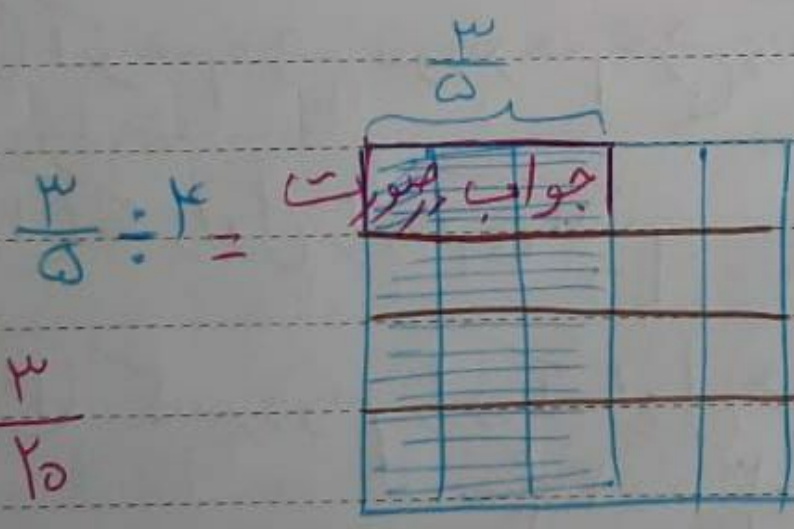 ۳/۵
۳/۵ ÷ ۴ =
جواب در صورت
۳/۲۰